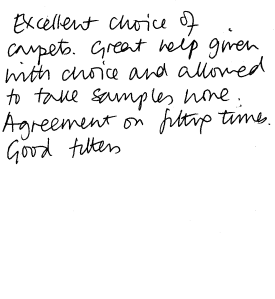 Excellent choice of
carpets. Great help given
with choice and allowed
to take samples home.
Agreement on fitting times.
Good fitters